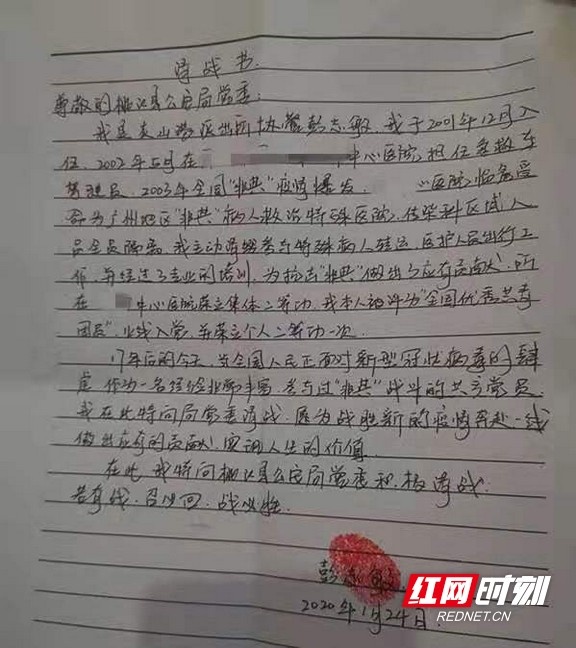 请战书
尊敬的桃江县公安局党委:
我是灰山港派出所协警彭志敏,我于2001年12月入
伍,2002年5月在 中心医院,担任急救车
驾驶员,2003年全国"非典"疫情爆发, 医院临危受
命为广州地区"非典"病人救治特殊医院,传染科区域人
员全员隔离,我主动请缨参与特殊病人转运,医护人员出行工
作,并经过了专业的培训,为抗击"非典"做出了应有贡献,所
在 中心医院荣立集体二等功,我本人被评为"全国优秀共青
团员",火线入党,并荣立个人二等功一次。
17年后的今天,当全国人民正面对新型冠状病毒的肆
虐,作为一名经验非常丰富,参与过"非典"战斗的共产党员,
我在此特向局党委请战,愿为战胜新的疫情奔赴一线
做出应有的贡献,实现人生的价值。
在此,我特向桃江县公安局党委积极请战:
若有战,召必回,战必胜。
彭志敏
2020年1月24日.
红网时刻
REDNET.CN